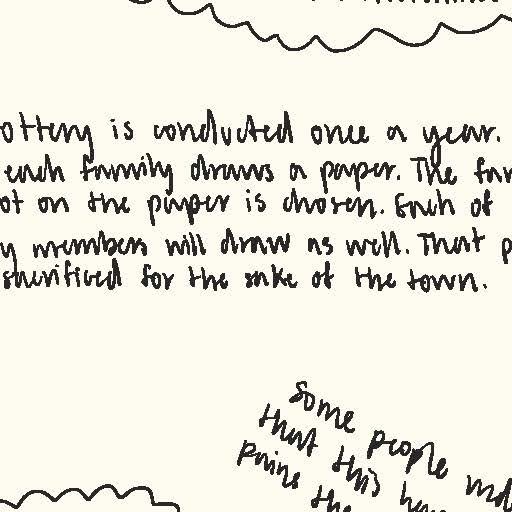 ottery is conducted once a year.
each family draws a paper. The fam
ot on the paper is chosen. Each of
y members will draw as well. That p
sacrificed for the sake of the town.
some people
that this
paine the